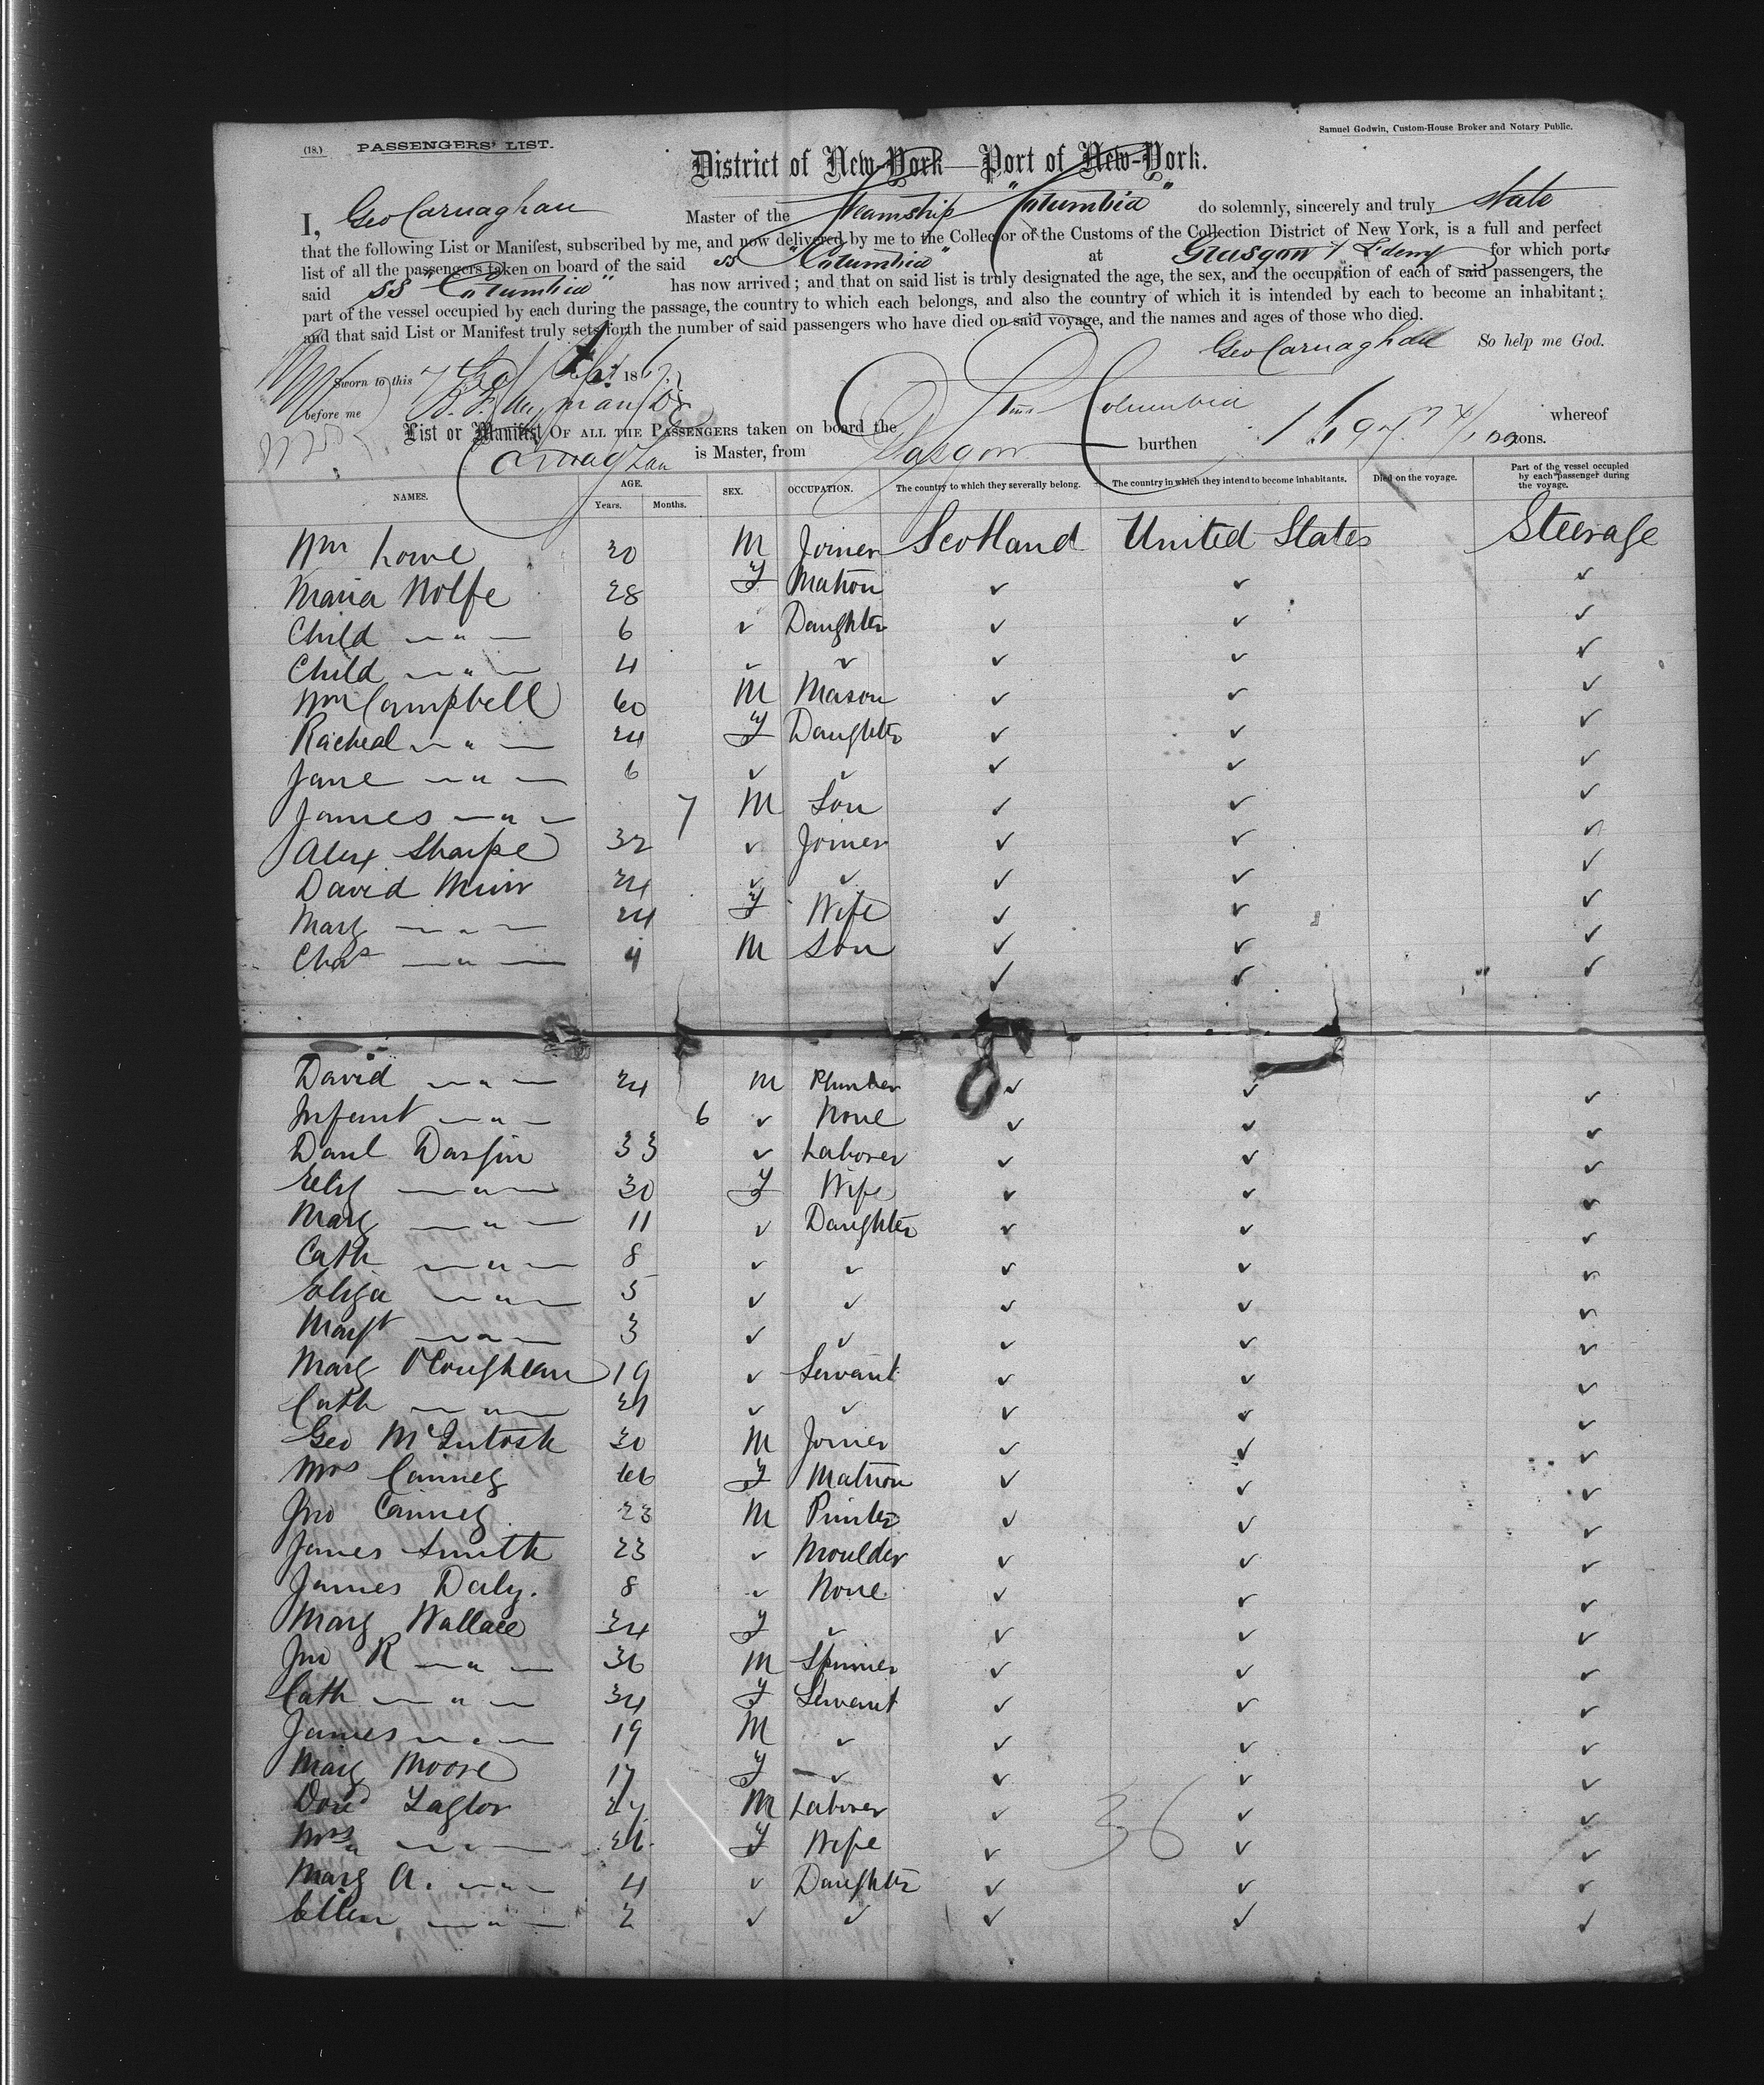 Samuel Godwin, Custom-House Broker and Notary Public.
(18.) PASSENGERS' LIST.
District of New-York—Port of New-York.
I, Geo Carnaghan Master of the Steamship "Columbia" do solemnly, sincerely and truly state
that the following List or Manifest, subscribed by me, and now delivered by me to the Collector of the Customs of the Collection District of New York, is a full and perfect
list of all the passengers taken on board of the said ss "Columbia" at Glasgow & L'derry for which ports
said SS "Columbia" has now arrived; and that on said list is truly designated the age, the sex, and the occupation of each of said passengers, the
part of the vessel occupied by each during the passage, the country to which each belongs, and also the country of which it is intended by each to become an inhabitant;
and that said List or Manifest truly sets forth the number of said passengers who have died on said voyage, and the names and ages of those who died.
Geo Carnaghan So help me God.
Sworn to this 186
before me
List or Manifest OF ALL THE PASSENGERS taken on board the Columbia whereof
Carnaghan is Master, from Glasgow burthen tons.
NAMES. AGE. Years. Months. SEX. OCCUPATION. The country to which they severally belong. The country in which they intend to become inhabitants. Died on the voyage. Part of the vessel occupied by each passenger during the voyage.
Wm Lowe 30 M Joiner Scotland United States Steerage
Maria Wolfe 28 F Matron ✓ ✓ ✓
Child — " — 6 ✓ Daughter ✓ ✓ ✓
Child — " — 4 ✓ ✓ ✓ ✓ ✓
Wm Campbell 60 M Mason ✓ ✓ ✓
Racheal — " — 24 F Daughter ✓ ✓ ✓
Jane — " — 6 ✓ ✓ ✓ ✓ ✓
James — " — 7 M Son ✓ ✓ ✓
Alex Sharpe 32 ✓ Joiner ✓ ✓ ✓
David Muir 24 ✓ ✓ ✓ ✓ ✓
Mary — " — 24 F Wife ✓ ✓ ✓
Chas — " — 4 M Son ✓ ✓ ✓
David — " — 24 M Plumber ✓ ✓ ✓
Infant — " — 6 ✓ None ✓ ✓ ✓
Danl 33 ✓ Laborer ✓ ✓ ✓
— " — 30 F Wife ✓ ✓ ✓
Mary — " — 11 ✓ Daughter ✓ ✓ ✓
Cath — " — 8 ✓ ✓ ✓ ✓ ✓
Eliza — " — 5 ✓ ✓ ✓ ✓ ✓
Margt — " — 3 ✓ ✓ ✓ ✓ ✓
Mary 19 ✓ Servant ✓ ✓ ✓
Cath — " — 21 ✓ ✓ ✓ ✓ ✓
Geo McIntosh 30 M Joiner ✓ ✓ ✓
Mrs Canney F Matron ✓ ✓ ✓
Jno Canney 23 M Printer ✓ ✓ ✓
James Smith 23 ✓ Moulder ✓ ✓ ✓
James Daly. 8 ✓ None ✓ ✓ ✓
Mary Wallace 34 F ✓ ✓ ✓ ✓
Jno R — " — 36 M Spinner ✓ ✓ ✓
Cath — " — 34 F Servant ✓ ✓ ✓
James — " — 19 M ✓ ✓ ✓ ✓
Mary Moore 17 F ✓ ✓ ✓ ✓
Taylor 27 M Laborer ✓ ✓ ✓
Mrs — " — 26 F Wife ✓ ✓ ✓
Mary A. — " — 4 ✓ Daughter ✓ ✓ ✓
Ellen — " — 2 ✓ ✓ ✓ ✓ ✓
36